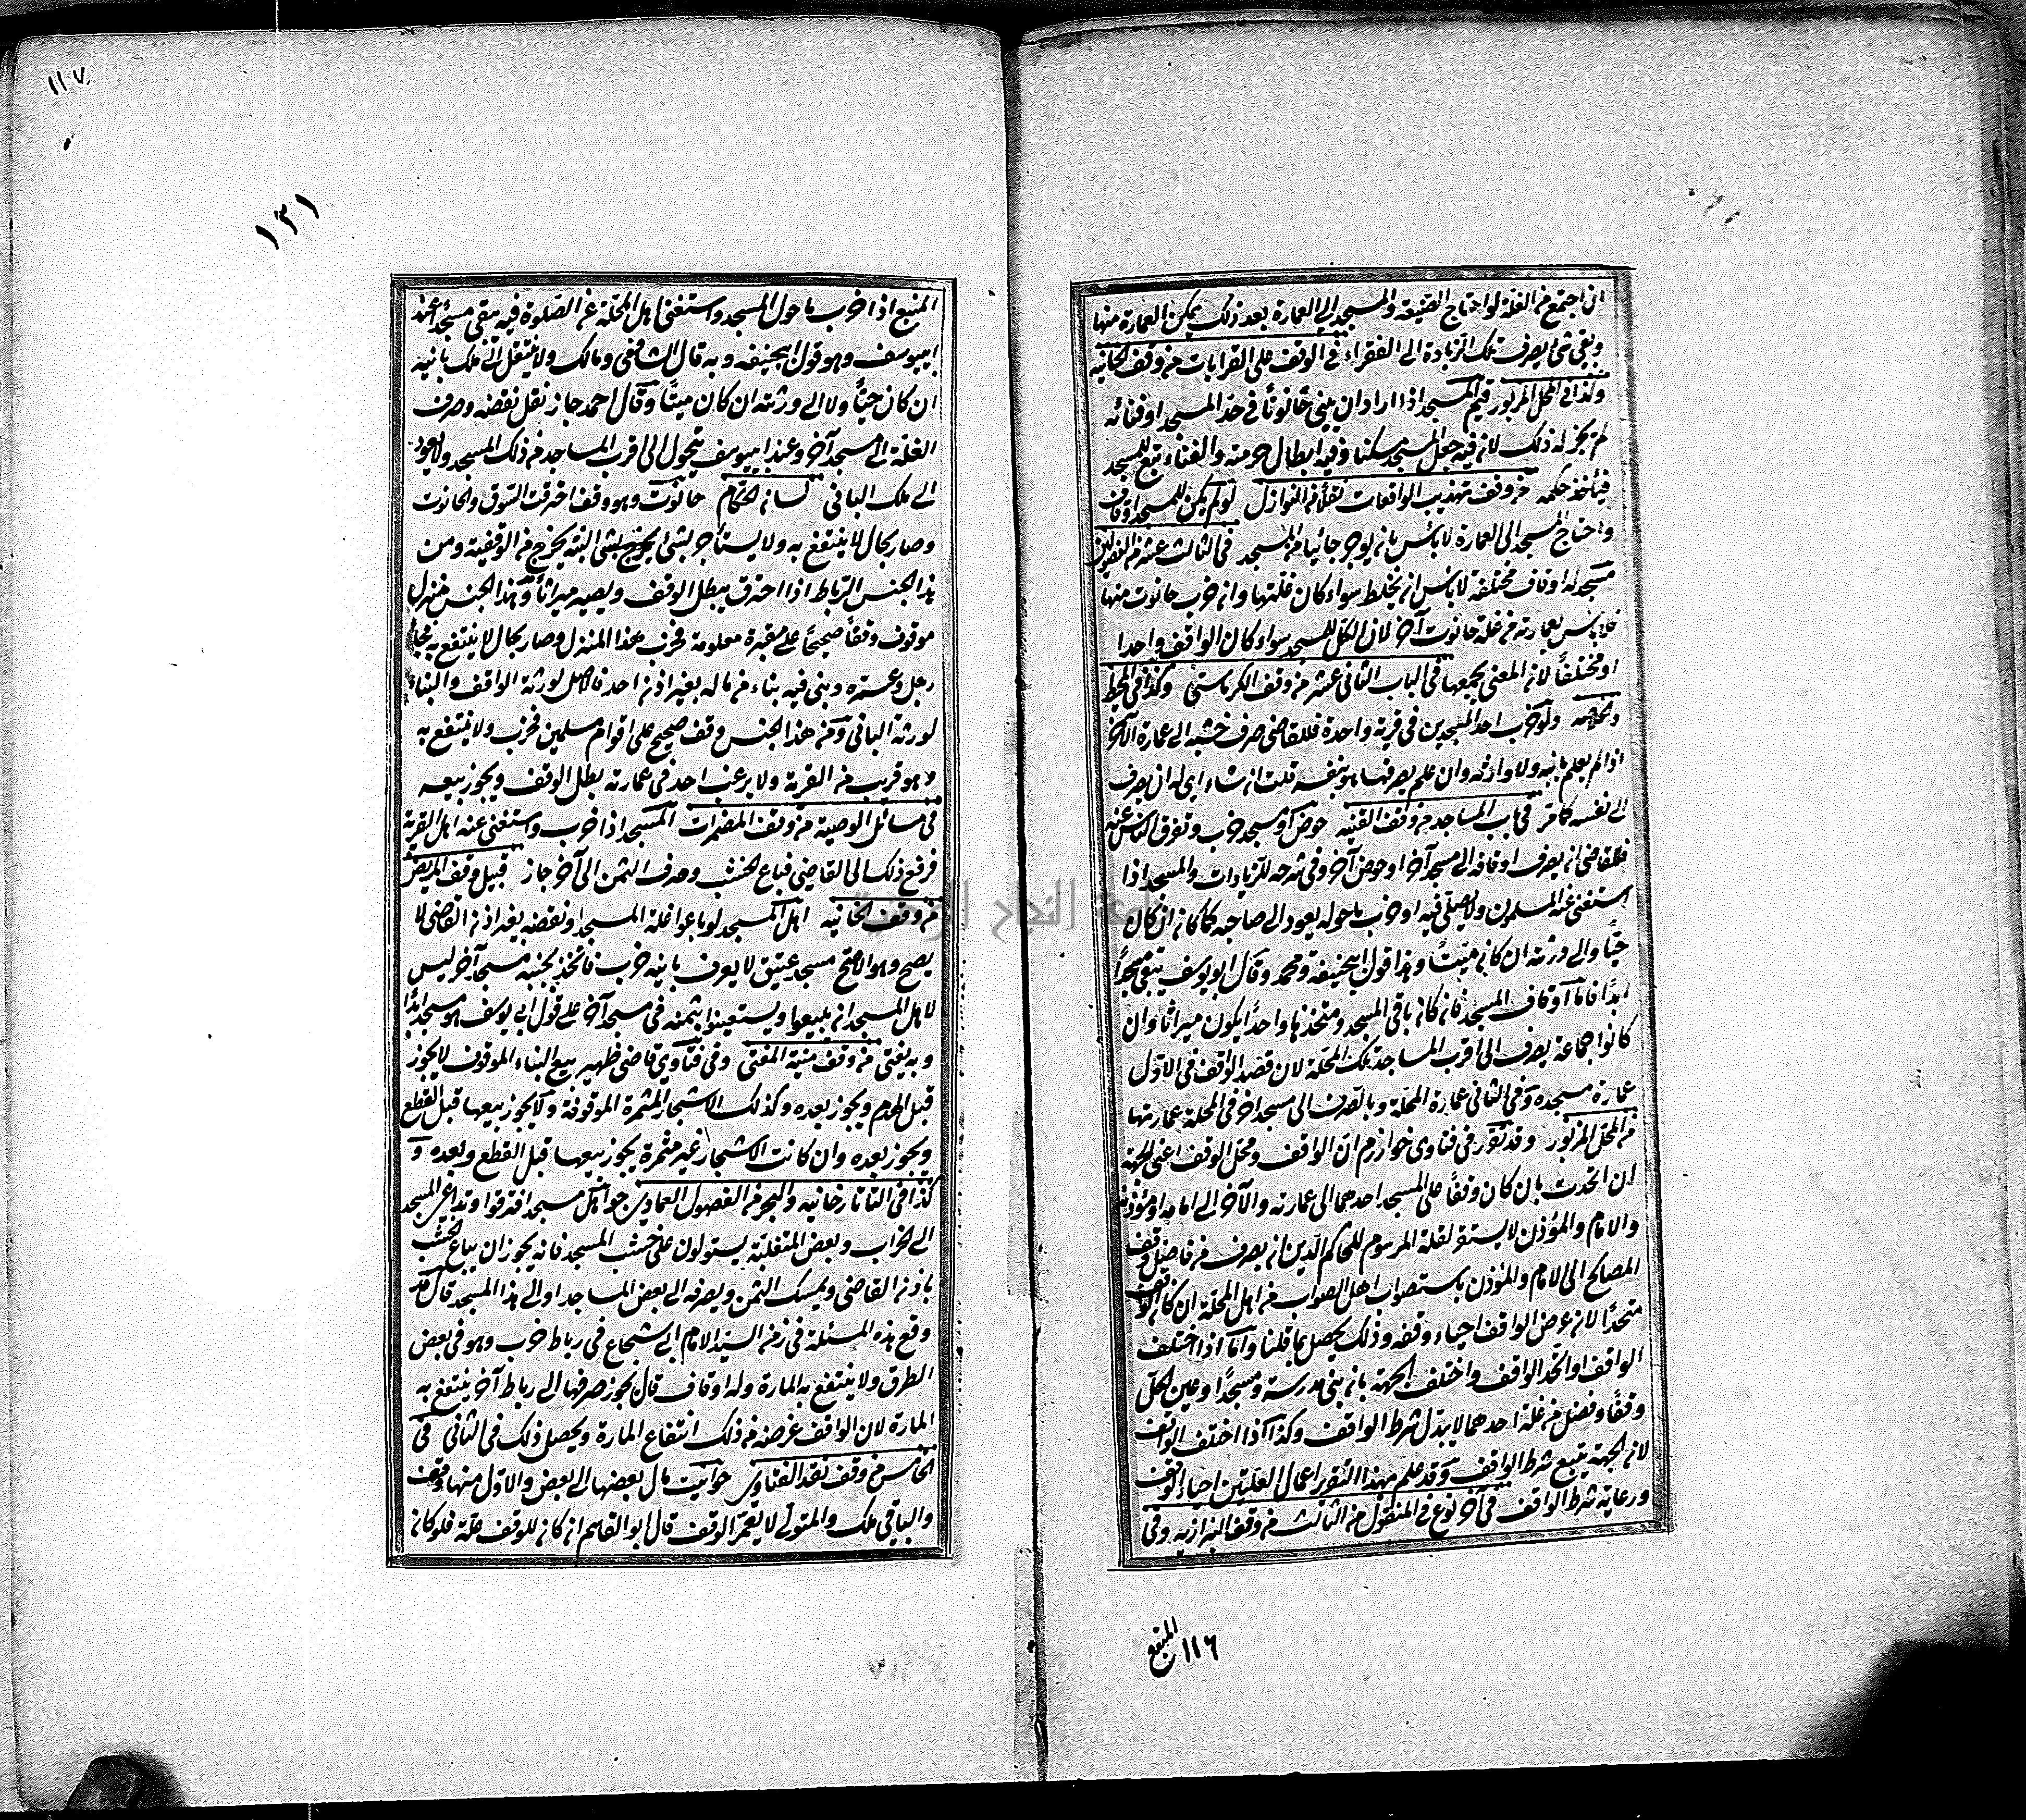 ان اجتمع من الغلة لو احتاج الضيعة والمسجد الى العمارة بعد ذلك يمكن العمارة منها
وبقى شئ يصرف تلك الزيادة الى الفقراء فى الوقف على القرابات من وقف الخانيه
وكذا فى المحل المزبور قيم المسجد اذا اراد ان يبنى حانوتا فى حد المسجد او فنائه
لم يجز له ذلك لان فيه جعل المسجد مسكنا وفيه ابطال حرمته والفناء تبع للمسجد
فيأخذ حكمه من وقف تهذيب الواقعات نقلا من النوازل لو لم يكن للمسجد اوقاف
واحتاج المسجد الى العمارة لا بأس بان يوجر جانبا من المسجد فى الثالث عشر من الفصولين
مسجد له اوقاف مختلفة لا بأس ان يخلط سواء كان غلتها وان خرب حانوت منها
فلا بأس بعمارته من غلة حانوت آخر لان الكل للمسجد سواء كان الواقف واحدا
او مختلفا لان المعنى يجمعها فى الباب الثانى عشر من وقف الكرماستى وكذا فى المحيط
والخلاصه ولو خرب احد المسجدين فى قرية واحدة فللقاضى صرف خشبه الى عمارة الآخر
اذا لم يعلم بانيه ولا وارثه وان علم يصرفها هو بنفسه قلت ان شاء اى له ان يصرف
الى نفسه كما مر فى باب المساجد من وقف القنيه حوض او مسجد خرب وتفرق الناس عنه
فللقاضى ان يصرف اوقافه الى مسجد آخر او حوض آخر وفى شرحه للزيادات والمسجد اذا
استغنى عنه المسلمون ولا يصلى فيه او خرب ما حوله يعود الى صاحبه كما كان ان كان
حيا والى ورثته ان كان ميتا وهذا قول ابيحنيفة ومحمد وقال ابو يوسف يبقى مسجدا
ابدا فاما اوقاف المسجد فان كان باقى المسجد ومتخذها واحدا يكون ميراثا وان
كانوا جماعة يصرف الى اقرب المساجد بتلك المحلة لان قصد الواقف فى الاول
عمارة مسجده وفى الثانى عمارة المحلة وبالصرف الى مسجد اخر فى المحلة عمارتها
من المحل المزبور وقد تقرر فى فتاوى خوارزم ان الواقف ومحل الوقف اعنى الجهة
ان اتحدت بان كان وقفا على المسجد احدهما الى عمارته والآخر الى امامه او مؤذنه
والامام والمؤذن لا يستقر لقلة المرسوم للحاكم الدين ان يصرف من فاضل وقف
المصالح الى الامام والمؤذن باستصواب اهل الصواب من اهل المحلة ان كان الواقف
متحدا لان غرض الواقف احياء وقفه وذلك يحصل بما قلنا واما اذا اختلف
الواقف او اتحد الواقف واختلف الجهة بان بنى مدرسة ومسجدا وعين لكل
وقفا وفضل من غلة احدهما لا يبدل شرط الواقف وكذا اذا اختلف الواقف
لان الجهة يتبع شرط الواقف وقد علم بهذا التقرير اعمال الغلتين احياء للوقف
ورعاية شرط الواقف فى آخر نوع فى المنقول من الثالث من وقف البزازيه وفى
المنبع
١١٦
١١٧
١٢١
المنبع اذا خرب ما حول المسجد واستغنى اهل المحلة عن الصلوة فيه يبقى مسجدا عند
ابيوسف وهو قول ابيحنيفه وبه قال الشافعى ومالك ولا ينتقل الى ملك بانيه
ان كان حيا ولا الى ورثته ان كان ميتا وقال احمد جاز نقل نقضه وصرف
الغلة الى مسجد آخر وعند ابيوسف يتحول الى اقرب المساجد من ذلك المسجد ولا يعود
الى ملك البانى لسان الحكام حانوت وهو وقف احترقت السوق والحانوت
وصار بحال لا ينتفع به ولا يستأجر بشئ البتة يخرج من الوقفية ومن
هذا الجنس الرباط اذا احترق يبطل الوقف ويصير ميراثا ومن هذا الجنس منزل
موقوف وقفا صحيحا على مقبرة معلومة فخرب هذا المنزل وصار بحال لا ينتفع به فجاء
رجل وعمره وبنى فيه بناء من ماله بغير اذن احد فالاصل لورثة الواقف والبناء
لورثة البانى ومن هذا الجنس وقف صحيح على اقوام مسلمين فخرب ولا ينتفع به
وهو قريب من القرية ولا يرغب احد فى عمارته بطل الوقف ويجوز بيعه
فى مسائل الوصية من وقف المضمرات المسجد اذا خرب واستغنى عنه اهل القرية
فرفع ذلك الى القاضى فباع الخشب وصرف الثمن الى آخر جاز قبيل وقف المريض
من وقف الخانيه اهل المسجد لو باعوا غلة المسجد او نقضه بغير اذن القاضى لا
يصح وهو الاصح مسجد عتيق لا يعرف بانيه خرب فاتخذ بجنبه مسجد آخر ليس
لاهل المسجد ان يبيعوا ويستعينوا بثمنه فى مسجد آخر على قول ابى يوسف هو مسجد ابدا
وبه يفتى من وقف منية المفتى وفى فتاوى قاضى ظهير بيع البناء الموقوف لا يجوز
قبل الهدم ويجوز بعده وكذلك الاشجار المثمرة الموقوفة ولا يجوز بيعها قبل القطع
ويجوز بعده وان كانت الاشجار غير مثمرة يجوز بيعها قبل القطع وبعده و
كذا فى التاتارخانيه والبحر من الفصول العمادى جو اهل مسجد افترقوا وتداعى المسجد
الى الخراب وبعض المتغلبة يستولون على خشب المسجد فانه يجوز ان يباع الخشب
باذن القاضى ويمسك الثمن ويصرفه الى بعض المساجد او الى هذا المسجد قال قد
وقع هذه المسئلة فى زمن السيد الامام ابى شجاع فى رباط خرب وهو فى بعض
الطرق ولا ينتفع به المارة وله اوقاف قال يجوز صرفها الى رباط آخر ينتفع به
المارة لان الواقف غرضه من ذلك انتفاع المارة ويحصل ذلك فى الثانى فى
الخامس من وقف نقد الفتاوى حوانيت مال بعضها الى بعض والاول منها وقف
والباقى ملك والمتولى لا يعمر الوقف قال ابو القاسم ان كان للوقف غلة فلو كان